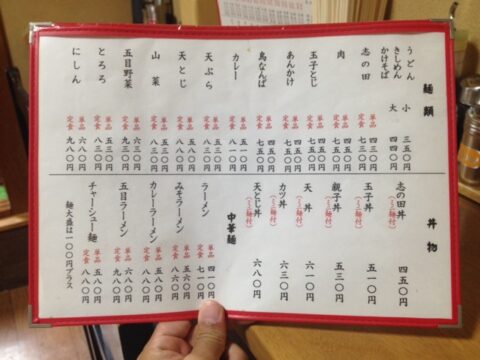 麺類
うどん
きしめん
かけそば
小 三五〇円
大 四四〇円
志の田
単品 四三〇円
定食 七五〇円
肉
単品 四五〇円
定食 七五〇円
玉子とじ
単品 四五〇円
定食 七五〇円
あんかけ
単品 四五〇円
定食 七五〇円
鳥なんば
単品 四五〇円
定食 七五〇円
カレー
単品
定食 八一〇円
天ぷら
単品 五三〇円
定食 八三〇円
天とじ
単品 五三〇円
定食 八三〇円
山菜
単品 五三〇円
定食 八三〇円
五目野菜
単品 六三〇円
定食 九三〇円
とろろ
単品 五三〇円
定食 八三〇円
にしん
単品 六八〇円
定食 九八〇円
丼物
志の田丼 (ミニ麺付) 四五〇円
玉子丼 (ミニ麺付) 五一〇円
親子丼 (ミニ麺付) 五三〇円
天丼 (ミニ麺付) 六一〇円
カツ丼 (ミニ麺付) 六三〇円
天とじ丼 (ミニ麺付) 六八〇円
中華麺
ラーメン
単品 四一〇円
定食 七一〇円
みそラーメン
単品 五六〇円
定食 八六〇円
カレーラーメン
単品 五八〇円
定食 八八〇円
五目ラーメン
単品 六八〇円
定食 九八〇円
チャーシュー麺
単品 五八〇円
定食 八八〇円
麺大盛は一〇〇円プラス